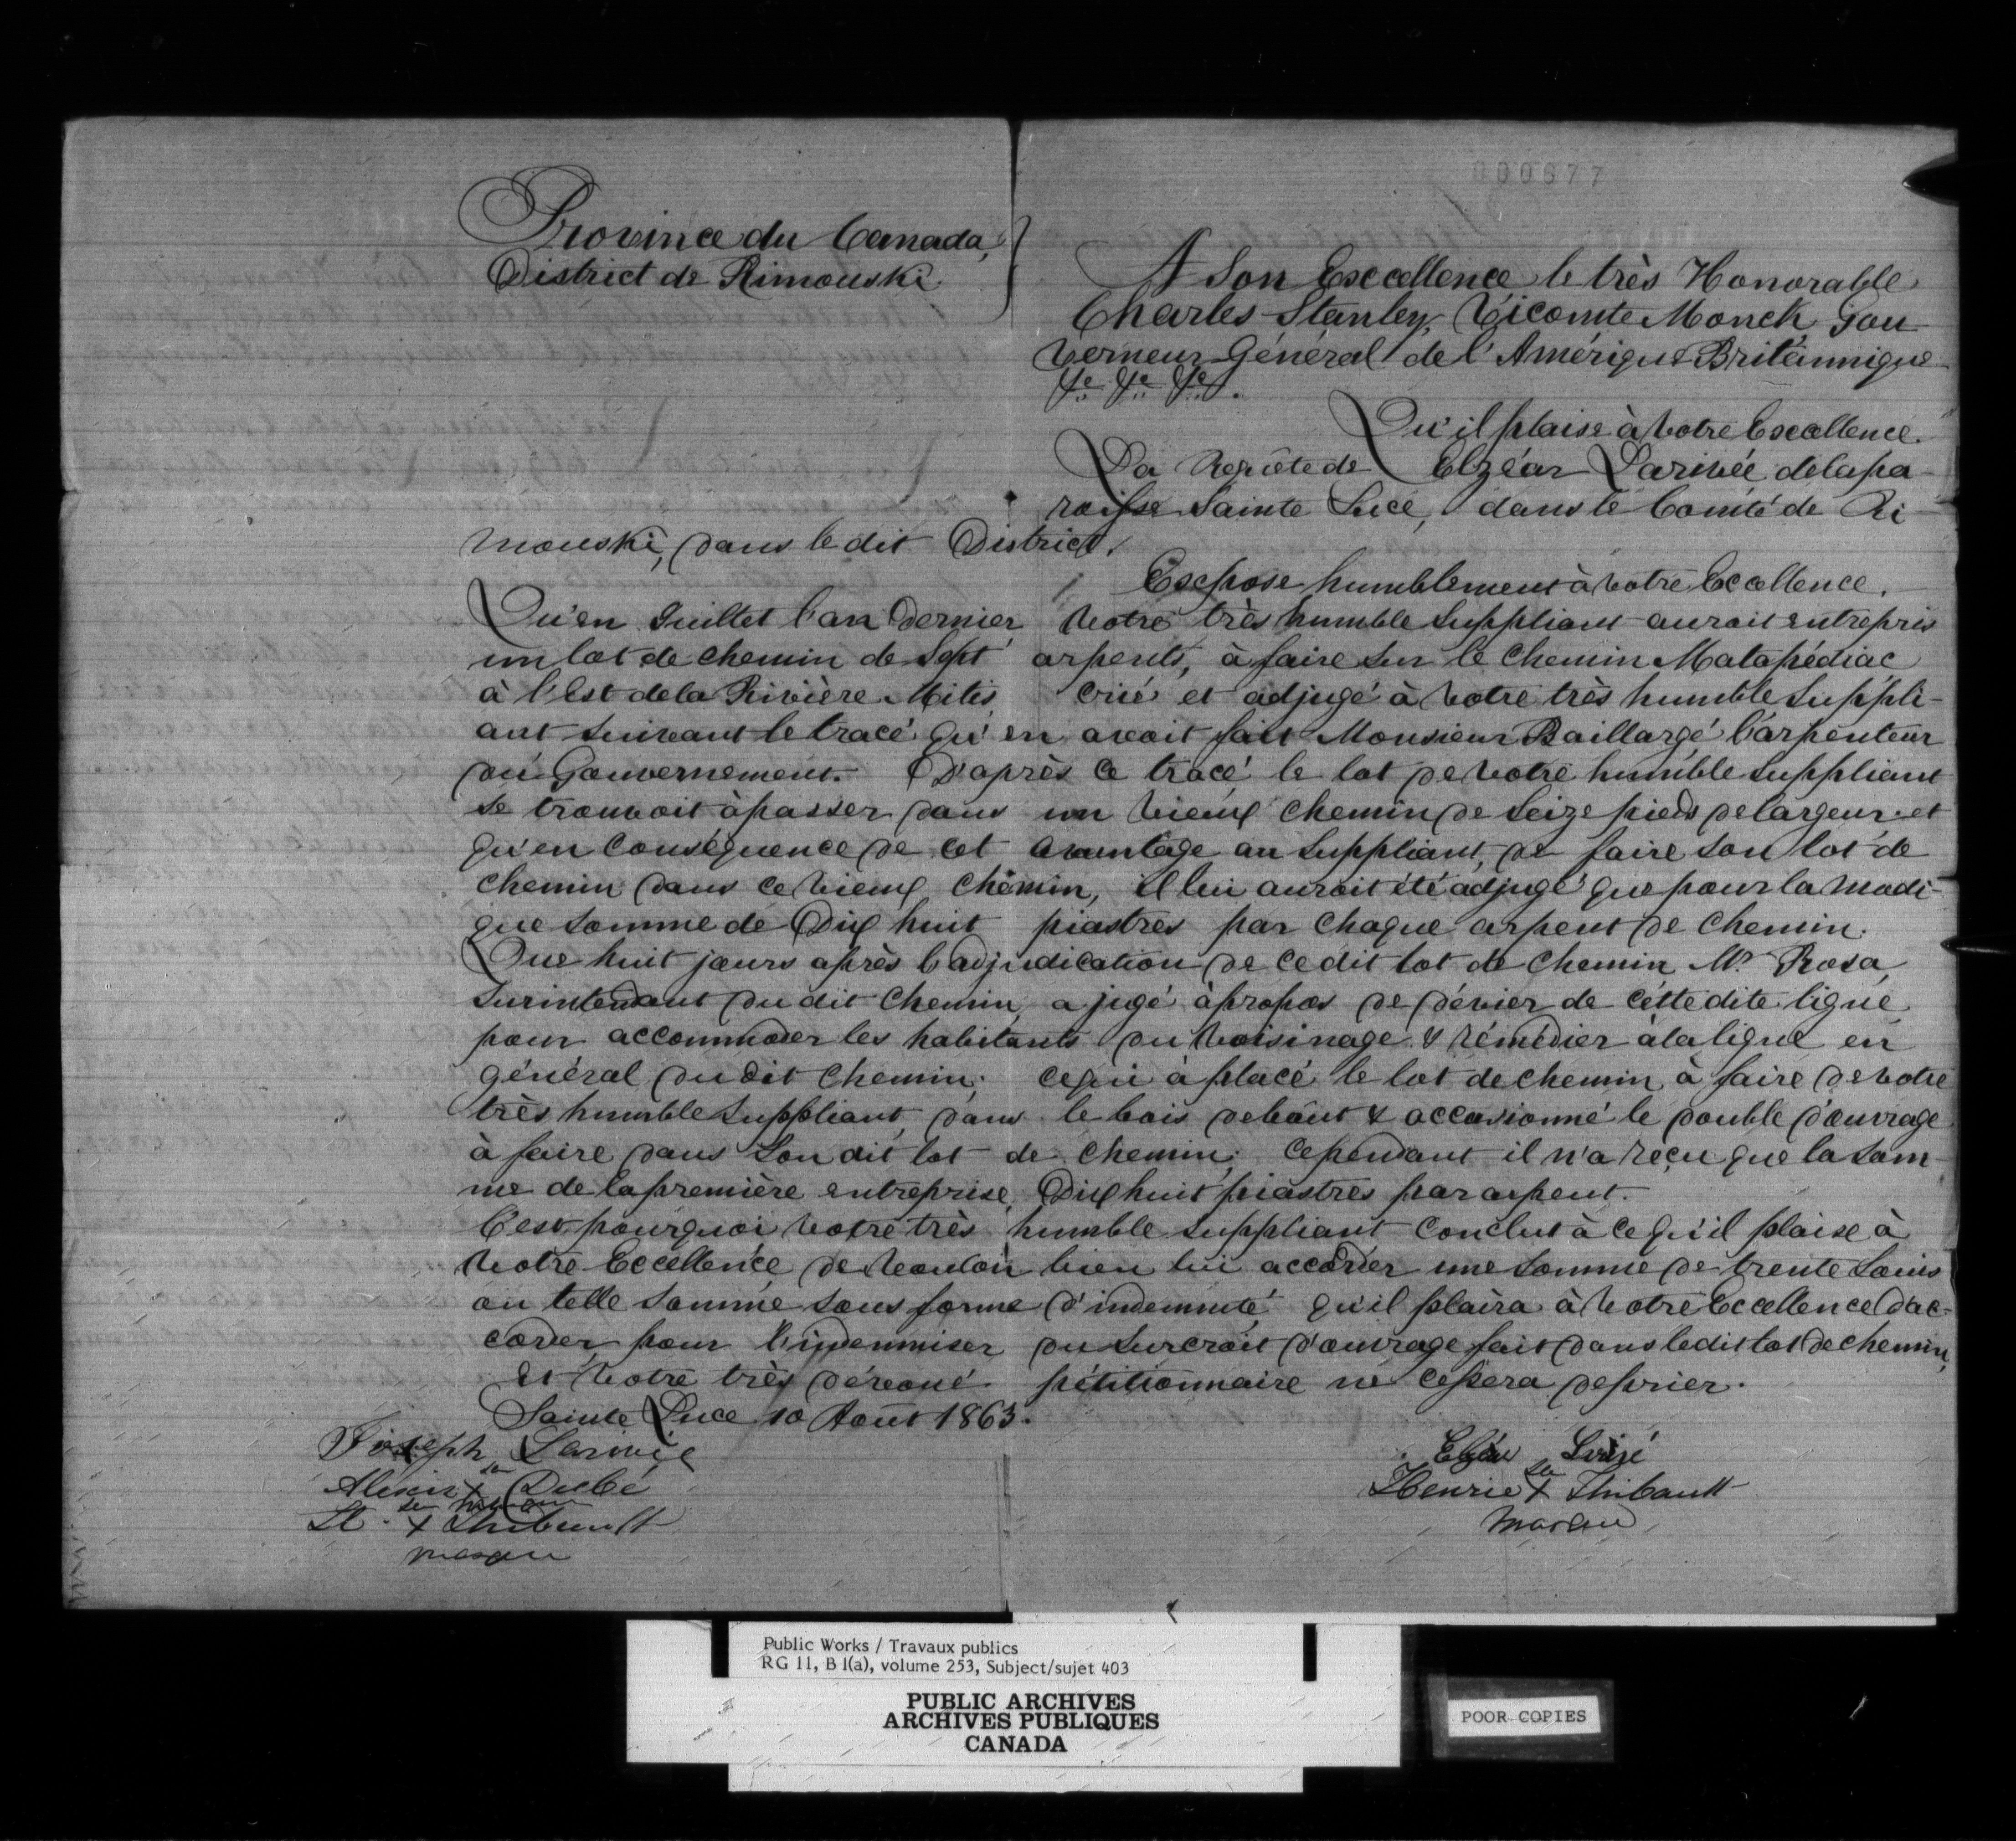 000677
Province du Canada,
District de Rimouski
A Son Excellence le très Honorable
Charles Stanley, Vicomte Monck Gou-
verneur Général de l'Amérique Britannique
&c &c &c.
Qu'il plaise à Votre Excellence.
La Requête de Elzéar Larivée de la pa-
roisse Sainte Luce, dans le Comté de Ri-
mouski, dans le dit District.
Expose humblement à Votre Eccellence.
Qu'en Juillet l'an dernier Votre très humble Suppliant aurait entrepris
un lot de chemin de Sept arpents, à faire sur le chemin Matapédiac
à l'Est de la Rivière Mitis crié et adjugé à Votre très humble Suppli-
ant suivant le tracé qu'en avait fait Monsieur Baillargé l'arpenteur
du Gouvernement. D'après ce tracé le lot de Votre humble Suppliant
se trouvait à passer dans un Vieux chemin de Seize pieds de largeur et
qu'en conséquence de cet avantage au Suppliant, de faire son lot de
chemin dans ce Vieux chemin, il lui aurait été adjugé que pour la modi-
que somme de Dix huit piastres par chaque arpent de chemin.
Que huit jours après l'adjudication de ce dit lot de chemin Mr. Rosa,
Surintendant du dit chemin, a jugé à propos de dévier de cette dite ligne
pour accommoder les habitants du Voisinage & rémédier à la ligne en
général du dit chemin. ce qui à placé le lot de chemin à faire de Votre
très humble Suppliant, dans le bois debout & occasionné le double d'ouvrage
à faire dans Son dit lot de chemin; cependant il n'a reçu que la Som-
me de la première entreprise, Dix huit piastres par arpent.
C'est pourquoi Votre très humble Suppliant conclut à ce qu'il plaise à
Votre Eccellence de Vouloir bien lui accorder une somme de trente Louis
ou telle somme sous forme d'indemnité qu'il plaira à Votre Eccellence d'ac-
corder pour l'indemniser du surcroit d'ouvrage fait dans le dit lot de chemin,
Et Votre très dévoué pétitionnaire ne cessera de prier.
Sainte Luce 10 Août 1863.
Joseph Larivée
sa
Alexis X Dubé
sa marque
St. X Thibault
marque
Elzéar
sa
Henrie X Thibault
marque
Public Works / Travaux publics
RG 11, B 1(a), volume 253, Subject/sujet 403
PUBLIC ARCHIVES
ARCHIVES PUBLIQUES
CANADA
POOR COPIES